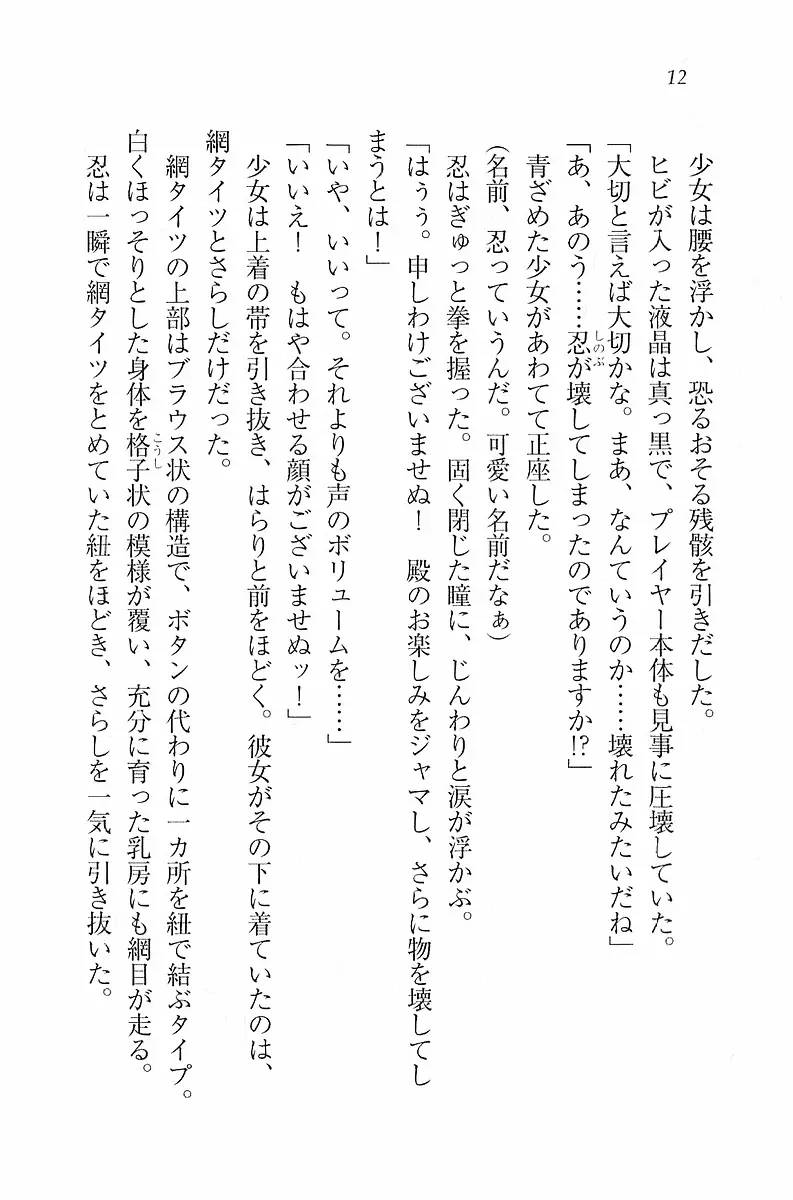 12
少女は腰を浮かし、恐るおそる残骸を引きだした。
ヒビが入った液晶は真っ黒で、プレイヤー本体も見事に圧壊していた。
「大切と言えば大切かな。まあ、なんていうのか……壊れたみたいだね」
「あ、あのう……忍が壊してしまったのでありますか!?」
しのぶ
青ざめた少女があわてて正座した。
（名前、忍っていうんだ。可愛い名前だなぁ）
忍はぎゅっと拳を握った。固く閉じた瞳に、じんわりと涙が浮かぶ。
「はぅぅ。申しわけございませぬ！　殿のお楽しみをジャマし、さらに物を壊してし
まうとは！」
「いや、いいって。それよりも声のボリュームを……」
「いいえ！　もはや合わせる顔がございませぬッ！」
少女は上着の帯を引き抜き、はらりと前をほどく。彼女がその下に着ていたのは、
網タイツとさらしだけだった。
網タイツの上部はブラウス状の構造で、ボタンの代わりに一カ所を紐で結ぶタイプ。
白くほっそりとした身体を格子状の模様が覆い、充分に育った乳房にも網目が走る。
こうし
忍は一瞬で網タイツをとめていた紐をほどき、さらしを一気に引き抜いた。